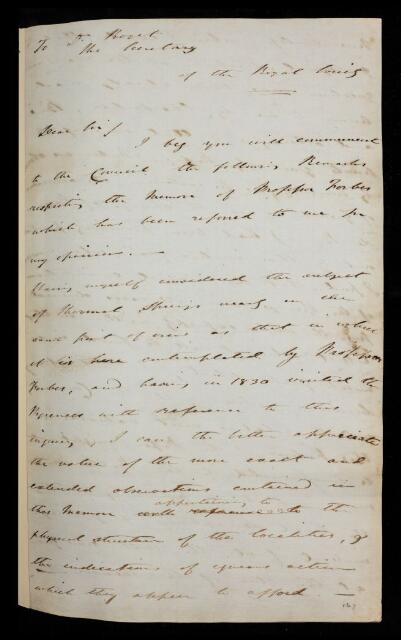 To Dr Roget
The Secretary
of the Royal Society
Dear Sir/
I beg you will communicate
to the Council the following Remarks
respecting the Memoir of Professor Forbes
which has been referred to me for
my opinion. —
Having myself considered the subject
of Thermal Springs nearly in the
same point of view as that in which
it is here contemplated by Professor
Forbes, and having in 1830 visited the
Pyrenees with reference to this
inquiry, I can the better appreciate
the value of the more exact and
extended observations contained in
appertaining to
this Memoir with reference to the
physical structure of the localities, &
the indications of igneous action
which they appear to afford. —